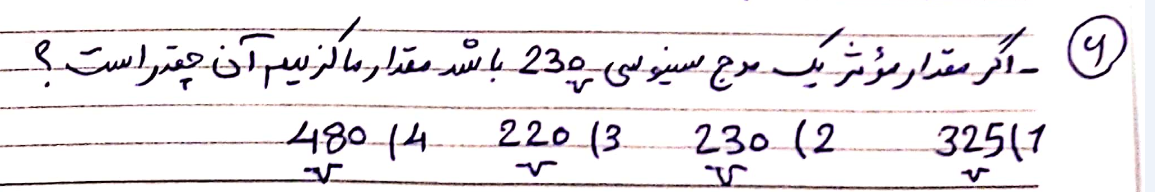 ۹ - اگر مقدار مؤثر یک موج سینوسی 230v باشد مقدار ماکزیمم آن چقدر است ؟
1) 325v 2) 230v 3) 220v 4) 480v